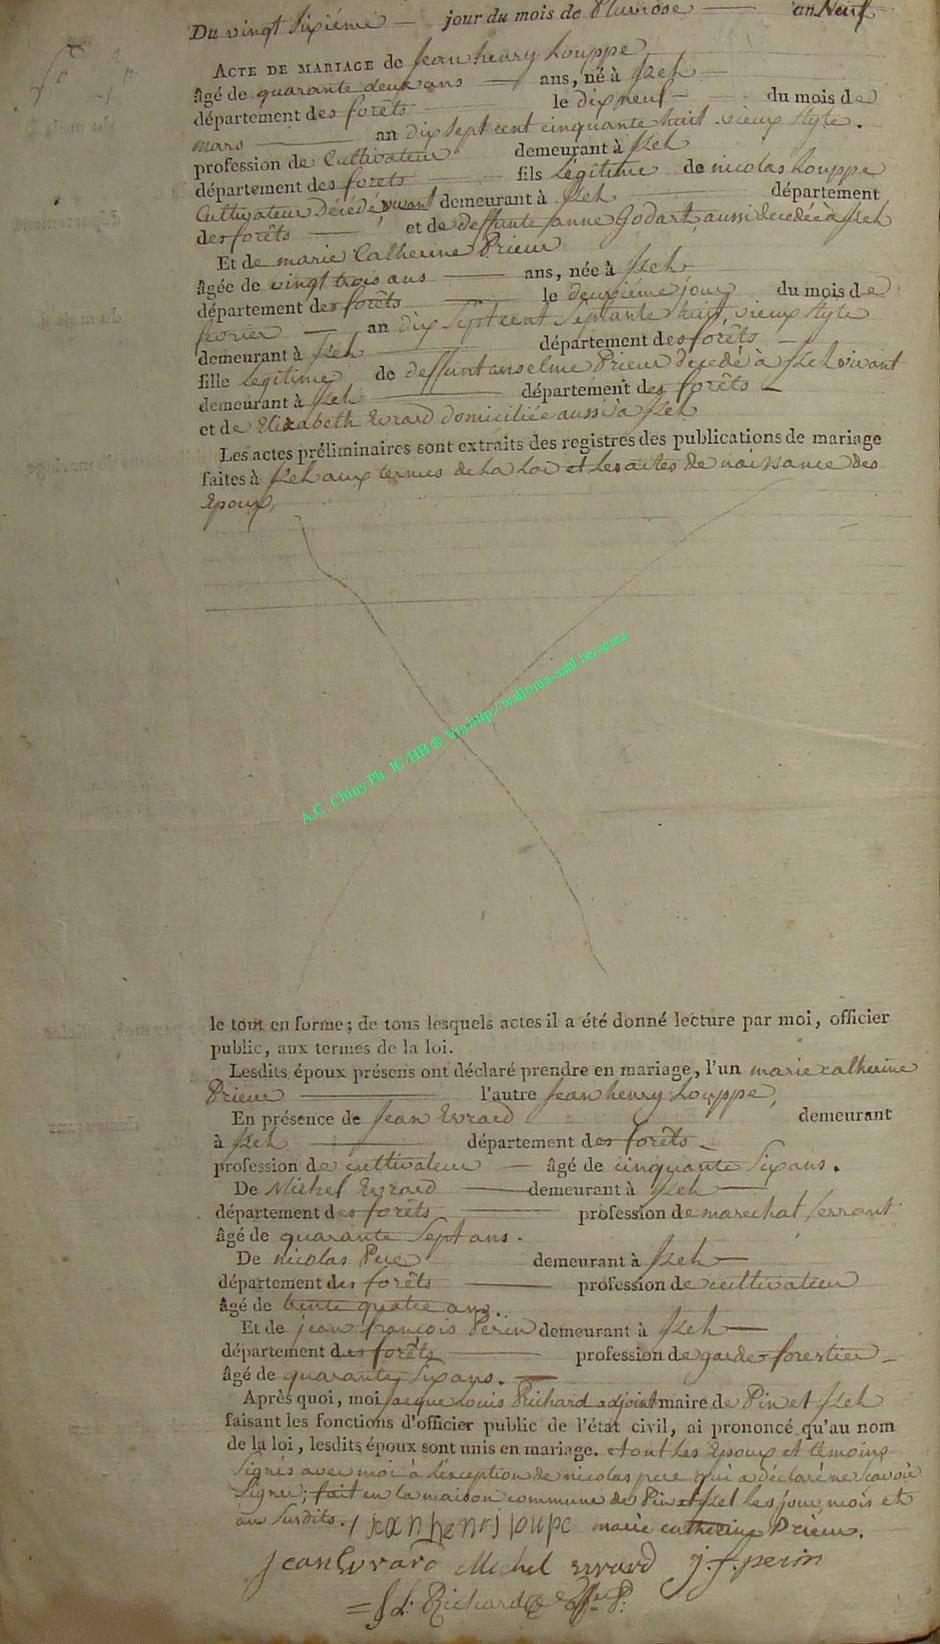 Du vingt Sixiéme — jour du mois de Pluviose — an Neuf
ACTE DE MARIAGE de Jean henry Louppe
âgé de quarante deux ans — ans, né à Izeh
département des forêts le dix neuf — du mois de
mars — an dix Sept cent cinquante huit vieux Style.
profession de Cultivateur demeurant à Izeh
département des forets — fils Légitime de nicolas Louppe
Cultivateur Décédé vivant demeurant à Izeh — département
des forêts — et de deffunte Janne Godart, aussi decedée à Izeh
Et de marie Catherine Prieur
âgée de vingt trois ans — ans, née à Izeh
département des forêts — le deuxiéme jour du mois de
fevrier — an dix Sept cent Septante huit, vieux Style
demeurant à Izeh — département des forêts —
fille Legitime de deffunt anselme Prieur decedé à Izeh vivant
demeurant à Izeh — département des forêts —
et de Elizabeth Evrard domiciliée aussi à Izeh
Les actes préliminaires sont extraits des registres des publications de mariage
faites à Izeh aux termes de La Loi et Les actes de naissance des
Epoux,
A.C. Chiny Ph. JC/HB ® Via http://wallonia-asbl.be/actes
le tout en forme; de tous lesquels actes il a été donné lecture par moi, officier
public, aux termes de la loi.
Lesdits époux présens ont déclaré prendre en mariage, l'un marie catherine
Prieur — l'autre Jean henry Louppe,
En présence de Jean Evrard demeurant
à Izeh — département des forêts —
profession de cultivateur — âgé de cinquante Six ans.
De Michel Evrard — demeurant à Izeh —
département des forêts — profession de marechal ferrant
âgé de quarante Sept ans.
De nicolas Pue demeurant à Izeh —
département des forêts — profession de cultivateur
âgé de trente quatre ans.
Et de jean françois Perin demeurant à Izeh —
département des forêts — profession de garde-forestier —
âgé de quarante Six ans. —
Après quoi, moi Jacque Louis Richard adjoint maire de Pin et Izeh
faisant les fonctions d'officier public de l'état civil, ai prononcé qu'au nom
de la loi, lesdits époux sont unis en mariage. et ont Les Epoux et temoins
Signés avec moi à L'exception de nicolas pue qui a déclaré ne Scavoir
Signer; fait en La maison commune de Pin et Izel Les jour, mois et
an Susdits. / jean henri loupe marie catherine Prieur.
jean Evrard Michel evrard j. f. perin
Richard